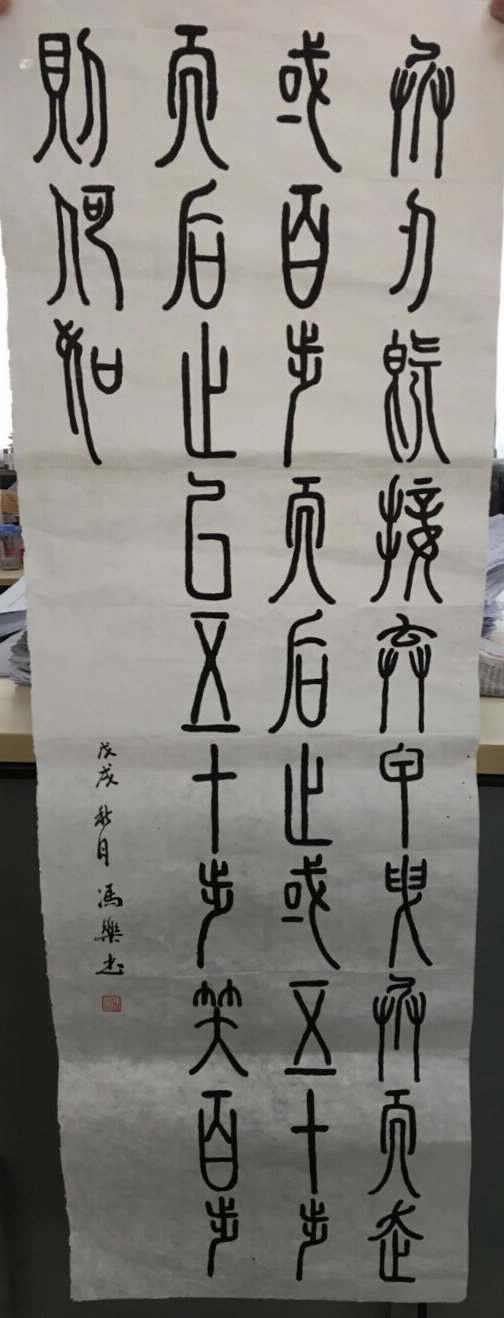 兵刃既接弃甲曳兵而走
或百步而后止或五十步
而后止以五十步笑百步
則何如
戊戌秋月馮樂书